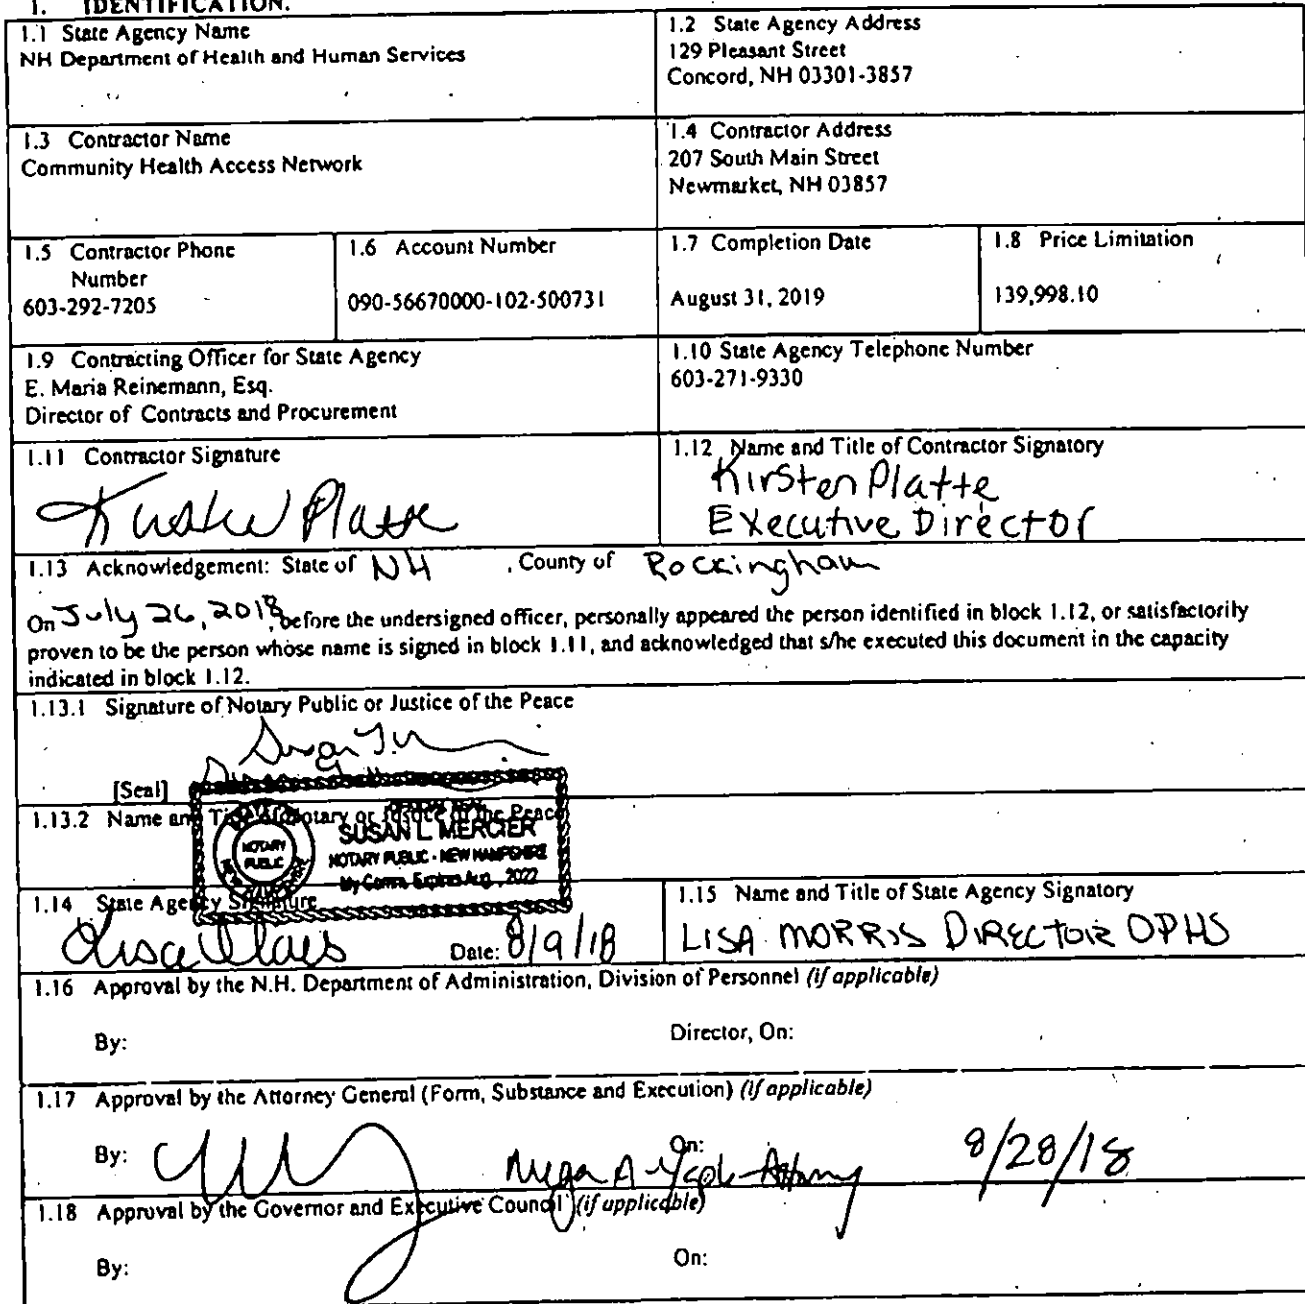 1. IDENTIFICATION.
1.1 State Agency Name
NH Department of Health and Human Services
1.2 State Agency Address
129 Pleasant Street
Concord, NH 03301-3857
1.3 Contractor Name
Community Health Access Network
1.4 Contractor Address
207 South Main Street
Newmarket, NH 03857
1.5 Contractor Phone
Number
603-292-7205
1.6 Account Number
090-56670000-102-500731
1.7 Completion Date
August 31, 2019
1.8 Price Limitation
139,998.10
1.9 Contracting Officer for State Agency
E. Maria Reinemann, Esq.
Director of Contracts and Procurement
1.10 State Agency Telephone Number
603-271-9330
1.11 Contractor Signature
Kirsten Platte
1.12 Name and Title of Contractor Signatory
Kirsten Platte
Executive Director
1.13 Acknowledgement: State of NH , County of Rockingham
On July 26, 2018, before the undersigned officer, personally appeared the person identified in block 1.12, or satisfactorily
proven to be the person whose name is signed in block 1.11, and acknowledged that s/he executed this document in the capacity
indicated in block 1.12.
1.13.1 Signature of Notary Public or Justice of the Peace
[Seal]
1.13.2 Name and Title of Notary or Justice of the Peace
NOTARY
PUBLIC
SUSAN L. MERCIER
NOTARY PUBLIC - NEW HAMPSHIRE
My Comm. Expires Aug. , 2022
1.14 State Agency Signature
Date: 8/9/18
1.15 Name and Title of State Agency Signatory
LISA MORRIS DIRECTOR DPHS
1.16 Approval by the N.H. Department of Administration, Division of Personnel (if applicable)
By:
Director, On:
1.17 Approval by the Attorney General (Form, Substance and Execution) (if applicable)
By:
On:
Attorney 8/28/18
1.18 Approval by the Governor and Executive Council (if applicable)
By:
On: